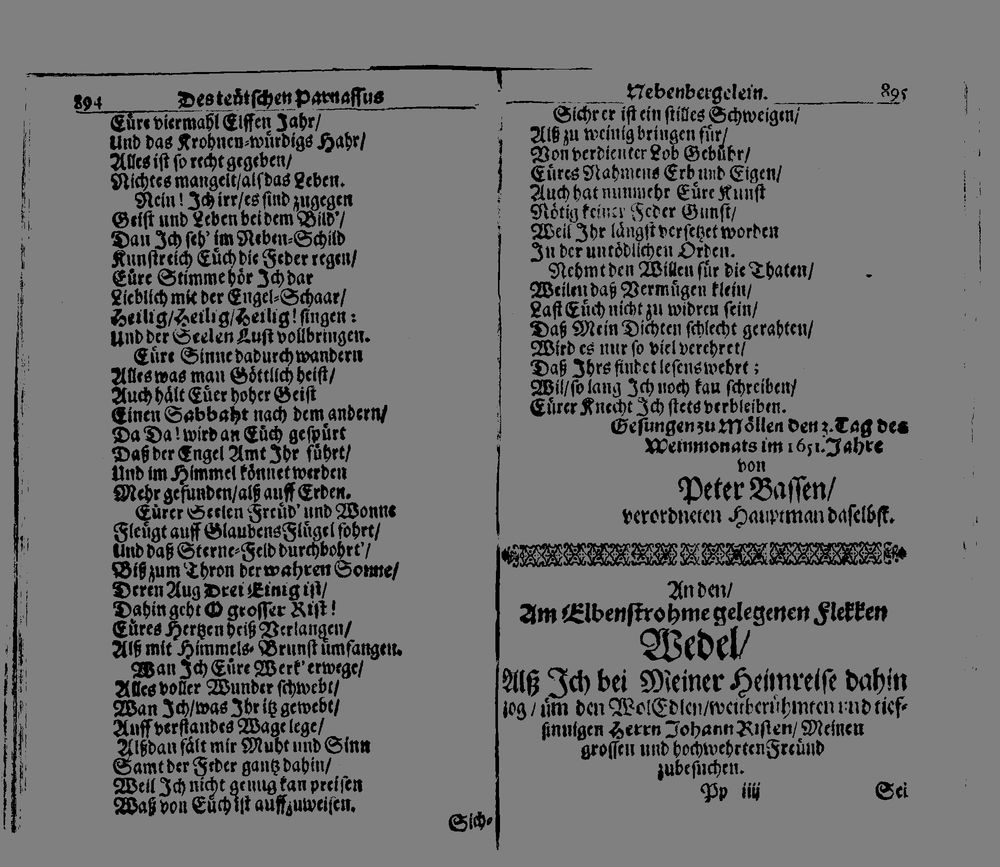 894 Des teütschen Parnassus
Eüre viermahl Elffen Jahr/
Und das Krohnen-würdigs Hahr/
Alles ist so recht gegeben/
Nichtes mangelt/als das Leben.
Nein! Ich irr/es sind zugegen
Geist und Leben bei dem Bild'/
Dan Ich seh' im Neben-Schild
Kunstreich Eüch die Feder regen/
Eüre Stimme hör Ich dar
Lieblich mit der Engel-Schaar/
Heilig/Heilig/Heilig! singen:
Und der Seelen Lust vollbringen.
Eüre Sinne dadurch wandern
Alles was man Göttlich heist/
Auch hält Eüer hoher Geist
Einen Sabbaht nach dem andern/
Da Da! wird an Eüch gespürt
Daß der Engel Amt Ihr führt/
Und im Himmel könnet werden
Mehr gefunden/alß auff Erden.
Eürer Seelen Freüd' und Wonne
Fleügt auff Glaubens Flügel fohrt/
Und daß Sterne-Feld durchbohrt'/
Biß zum Thron der wahren Sonne/
Deren Aug Drei Einig ist/
Dahin geht O grosser Rist!
Eüres Hertzen heiß Verlangen/
Alß mit Himmels-Brunst ümfangen.
Wan Ich Eüre Werk' erwege/
Alles voller Wunder schwebt/
Wan Ich/was Ihr itz gewebt/
Auff verstandes Wage lege/
Alßdan fält mir Muht und Sinn
Samt der Feder gantz dahin/
Weil Ich nicht genug kan preisen
Waß von Eüch ist auffzuweisen.
Sich-
Nebenbergelein. 895
Sicher ist ein stilles Schweigen/
Alß zu weinig bringen für/
Von verdienter Lob Gebühr/
Eüres Nahmens Erb und Eigen/
Auch hat nunmehr Eüre Kunst
Nötig keiner Feder Gunst/
Weil Ihr längst versetzet worden
In der untödlichen Orden.
Nehmt den Willen für die Thaten/
Weilen daß Vermügen klein/
Last Eüch nicht zu widren sein/
Daß Mein Dichten schlecht gerahten/
Wird es nur so viel verehret/
Daß Ihrs findet lesens wehrt;
Wil/so lang Ich noch kan schreiben/
Eürer Knecht Ich stets verbleiben.
Gesungen zu Möllen den 2. Tag des
Weinmonats im 1651. Jahre
von
Peter Bassen/
verordneten Hauptman daselbst.
An den/
Am Elbenstrohme gelegenen Flekken
Wedel/
Alß Ich bei Meiner Heimreise dahin
zog/üm den WolEdlen/weitberühmten und tief-
sinnigen Herrn Johann Risten/Meinen
grossen und hochwehrten Freünd
zubesuchen.
Pp iiij Sei